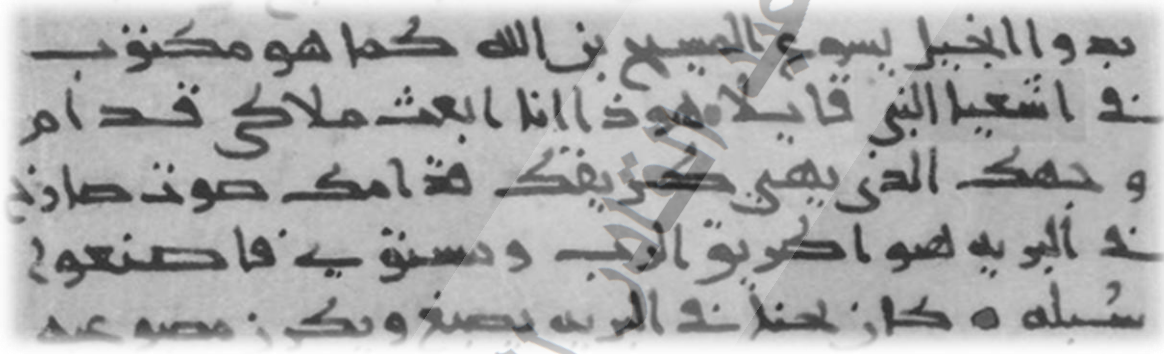 بدو الانجيل يسوع المسيح بن الله كما هو مكتوب
في اشعيا النبي قايلا هوذا انا ابعث ملاكي قدام
وجهك الذي يهيي طريقك قدامك صوت صارخ
في البريه اصلحوا طريق الرب و فاصنعوا
سبله ه كان يحنا في البريه يصبغ ويكرز